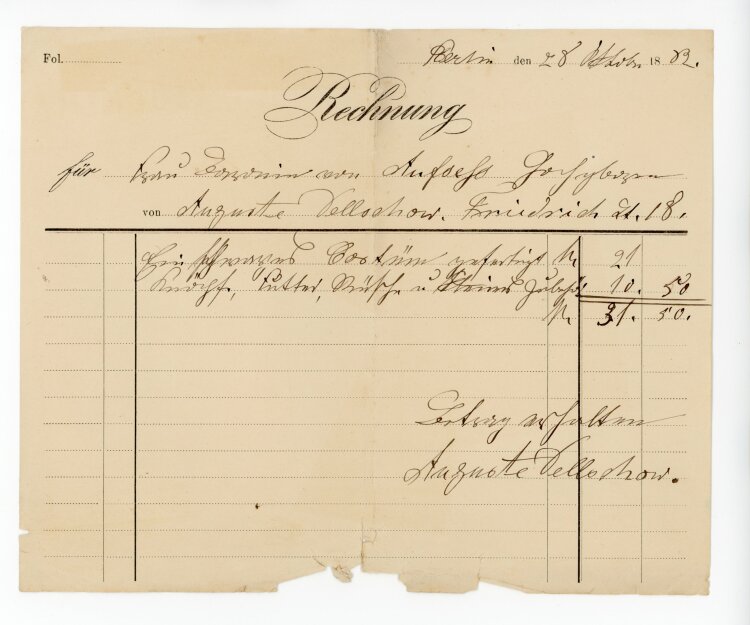 Fol.
Berlin den 28 Oktober 1882.
Rechnung
für Frau Baronin von Aufsess Hochgeboren
von Auguste Dellschow. Friedrich St. 18.
Ein schwarzes Costüm gefertigt M. 21
Knöpfe, Futter, Rüsche u. kleines Zubehör 10. 50
M. 31. 50.
Betrag erhalten
Auguste Dellschow.